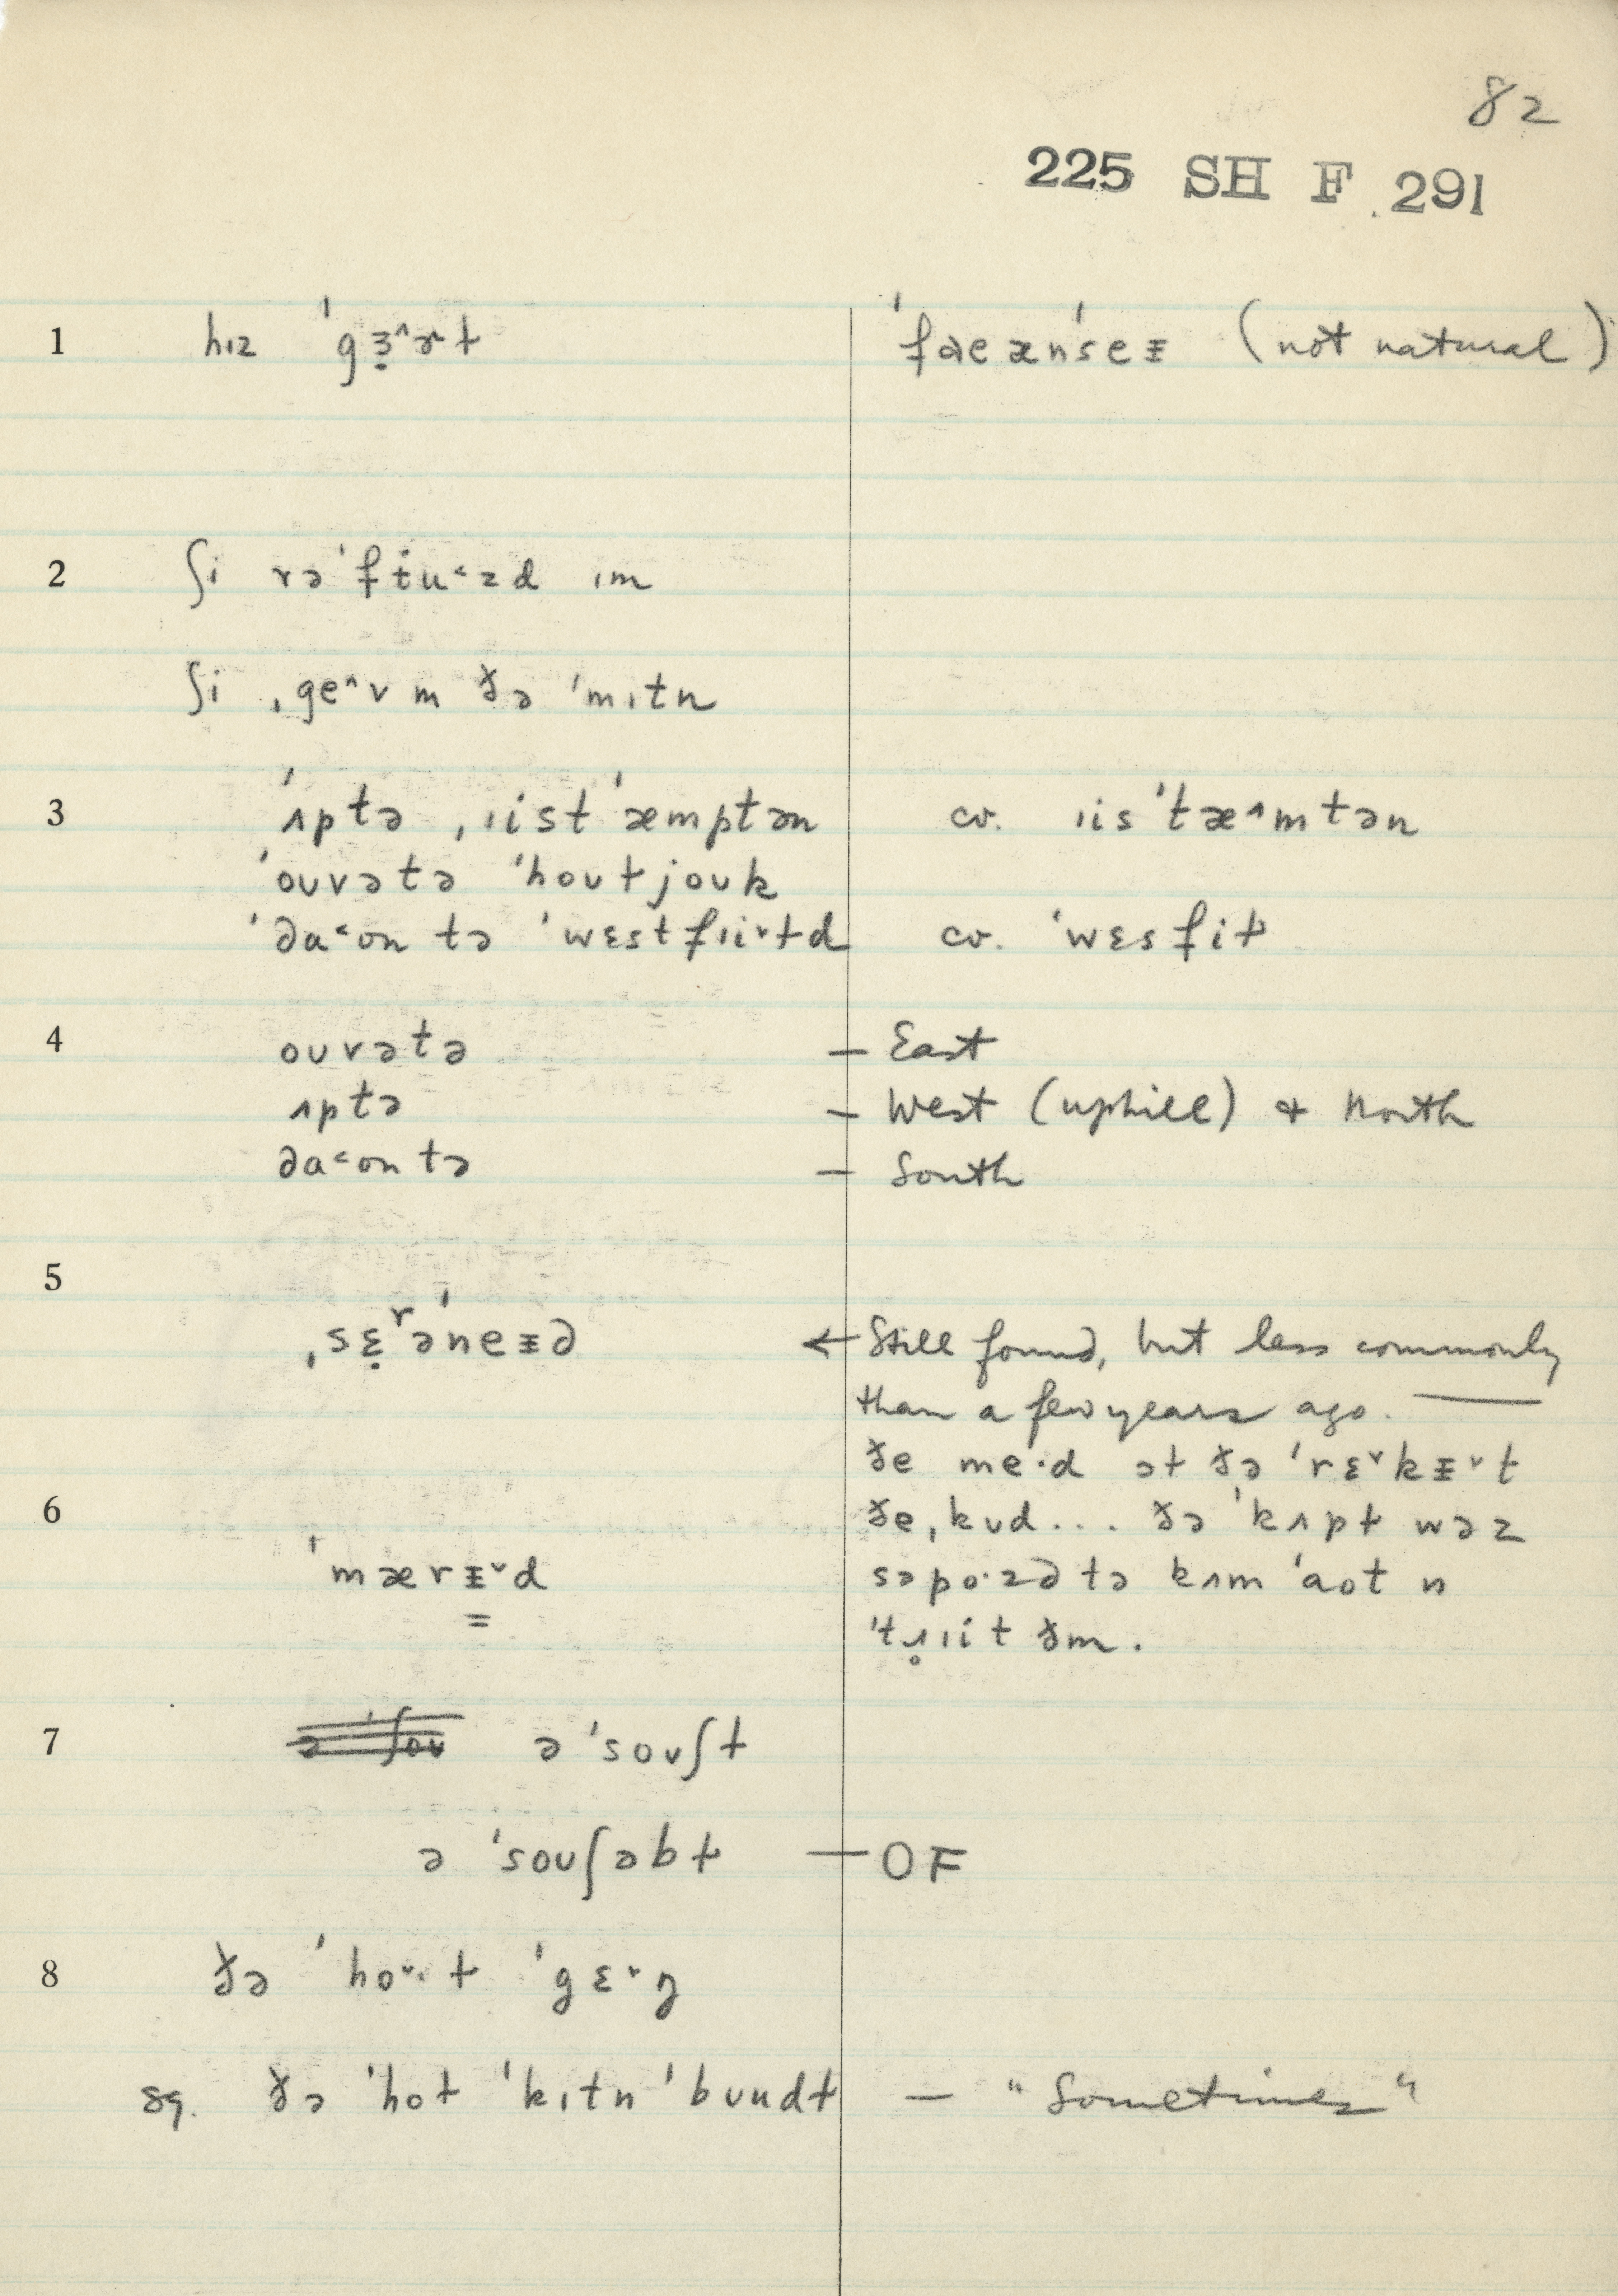 82
225 SH F 291
1 hɪz ˈgɜ̣^ɚɫ ˈfɑeənˈseᵻ (not natural)
2 ʃi rəˈfᵻu˂zd ɪm
ʃi ˌge^v m ðə ˈmɪtn
3 ˈʌptə ˌɪist ˈæmptən cv. ɪisˈtæ^mtən
ˈoʊvətə ˈhoʊɫjoʊk
ˈda˂ʊn tə ˈwɛstfɪi˅ɫd cv. ˈwɛsfiɫ
4 oʊvətə — East
ʌptə — West (uphill) & North
da˂ʊn tə — South
5
ˌsɛ̣ʳəˈneᵻd ← Still found, but less commonly
than a few years ago. —
ðe me·d əɫ ðə ˈrɛ˅kᵻ˅t
6 ðe ˌkʊd... ðə ˈkʌpɫ wəz
ˈmærᵻ˅d səpo·zd tə kʌm ˈaʊt n
ˈtɹ̥ɪit ðm.
7 ə ˈsoʊʃɫ
ə ˈsoʊʃəbɫ — OF
8 ðə ˈho˅·ɫ ˈgɛ˅ŋ
sq. ðə ˈhoɫ ˈkɪtn ˈbuudɫ — "Sometimes"